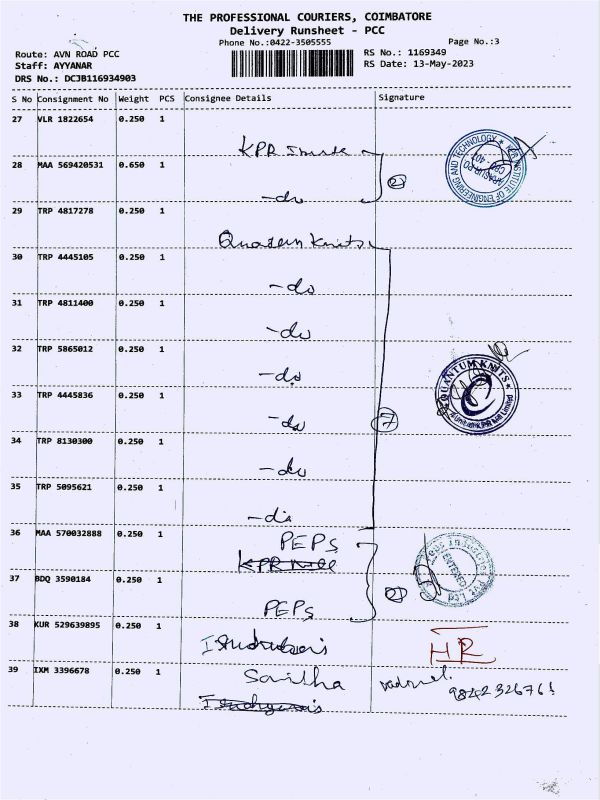 THE PROFESSIONAL COURIERS, COIMBATORE
Delivery Runsheet - PCC
Phone No.:0422-3505555
Page No.:3
Route: AVN ROAD PCC
RS No.: 1169349
Staff: AYYANAR
RS Date: 13-May-2023
DRS No.: DCJB116934903
S No Consignment No Weight PCS Consignee Details Signature
27 VLR 1822654 0.250 1
KPR
28 MAA 569420531 0.650 1
-do
29 TRP 4817278 0.250 1
Knits
30 TRP 4445105 0.250 1
-do
31 TRP 4811400 0.250 1
-do
32 TRP 5865012 0.250 1
-do
QUANTUM KNITS
33 TRP 4445836 0.250 1
-do
7
34 TRP 8130300 0.250 1
-do
35 TRP 5095621 0.250 1
-do
36 MAA 570032888 0.250 1
PEPS
ENTERED
37 BDQ 3590184 0.250 1
PEPS
38 KUR 529639895 0.250 1
HR
39 IXM 3396678 0.250 1
Savitha